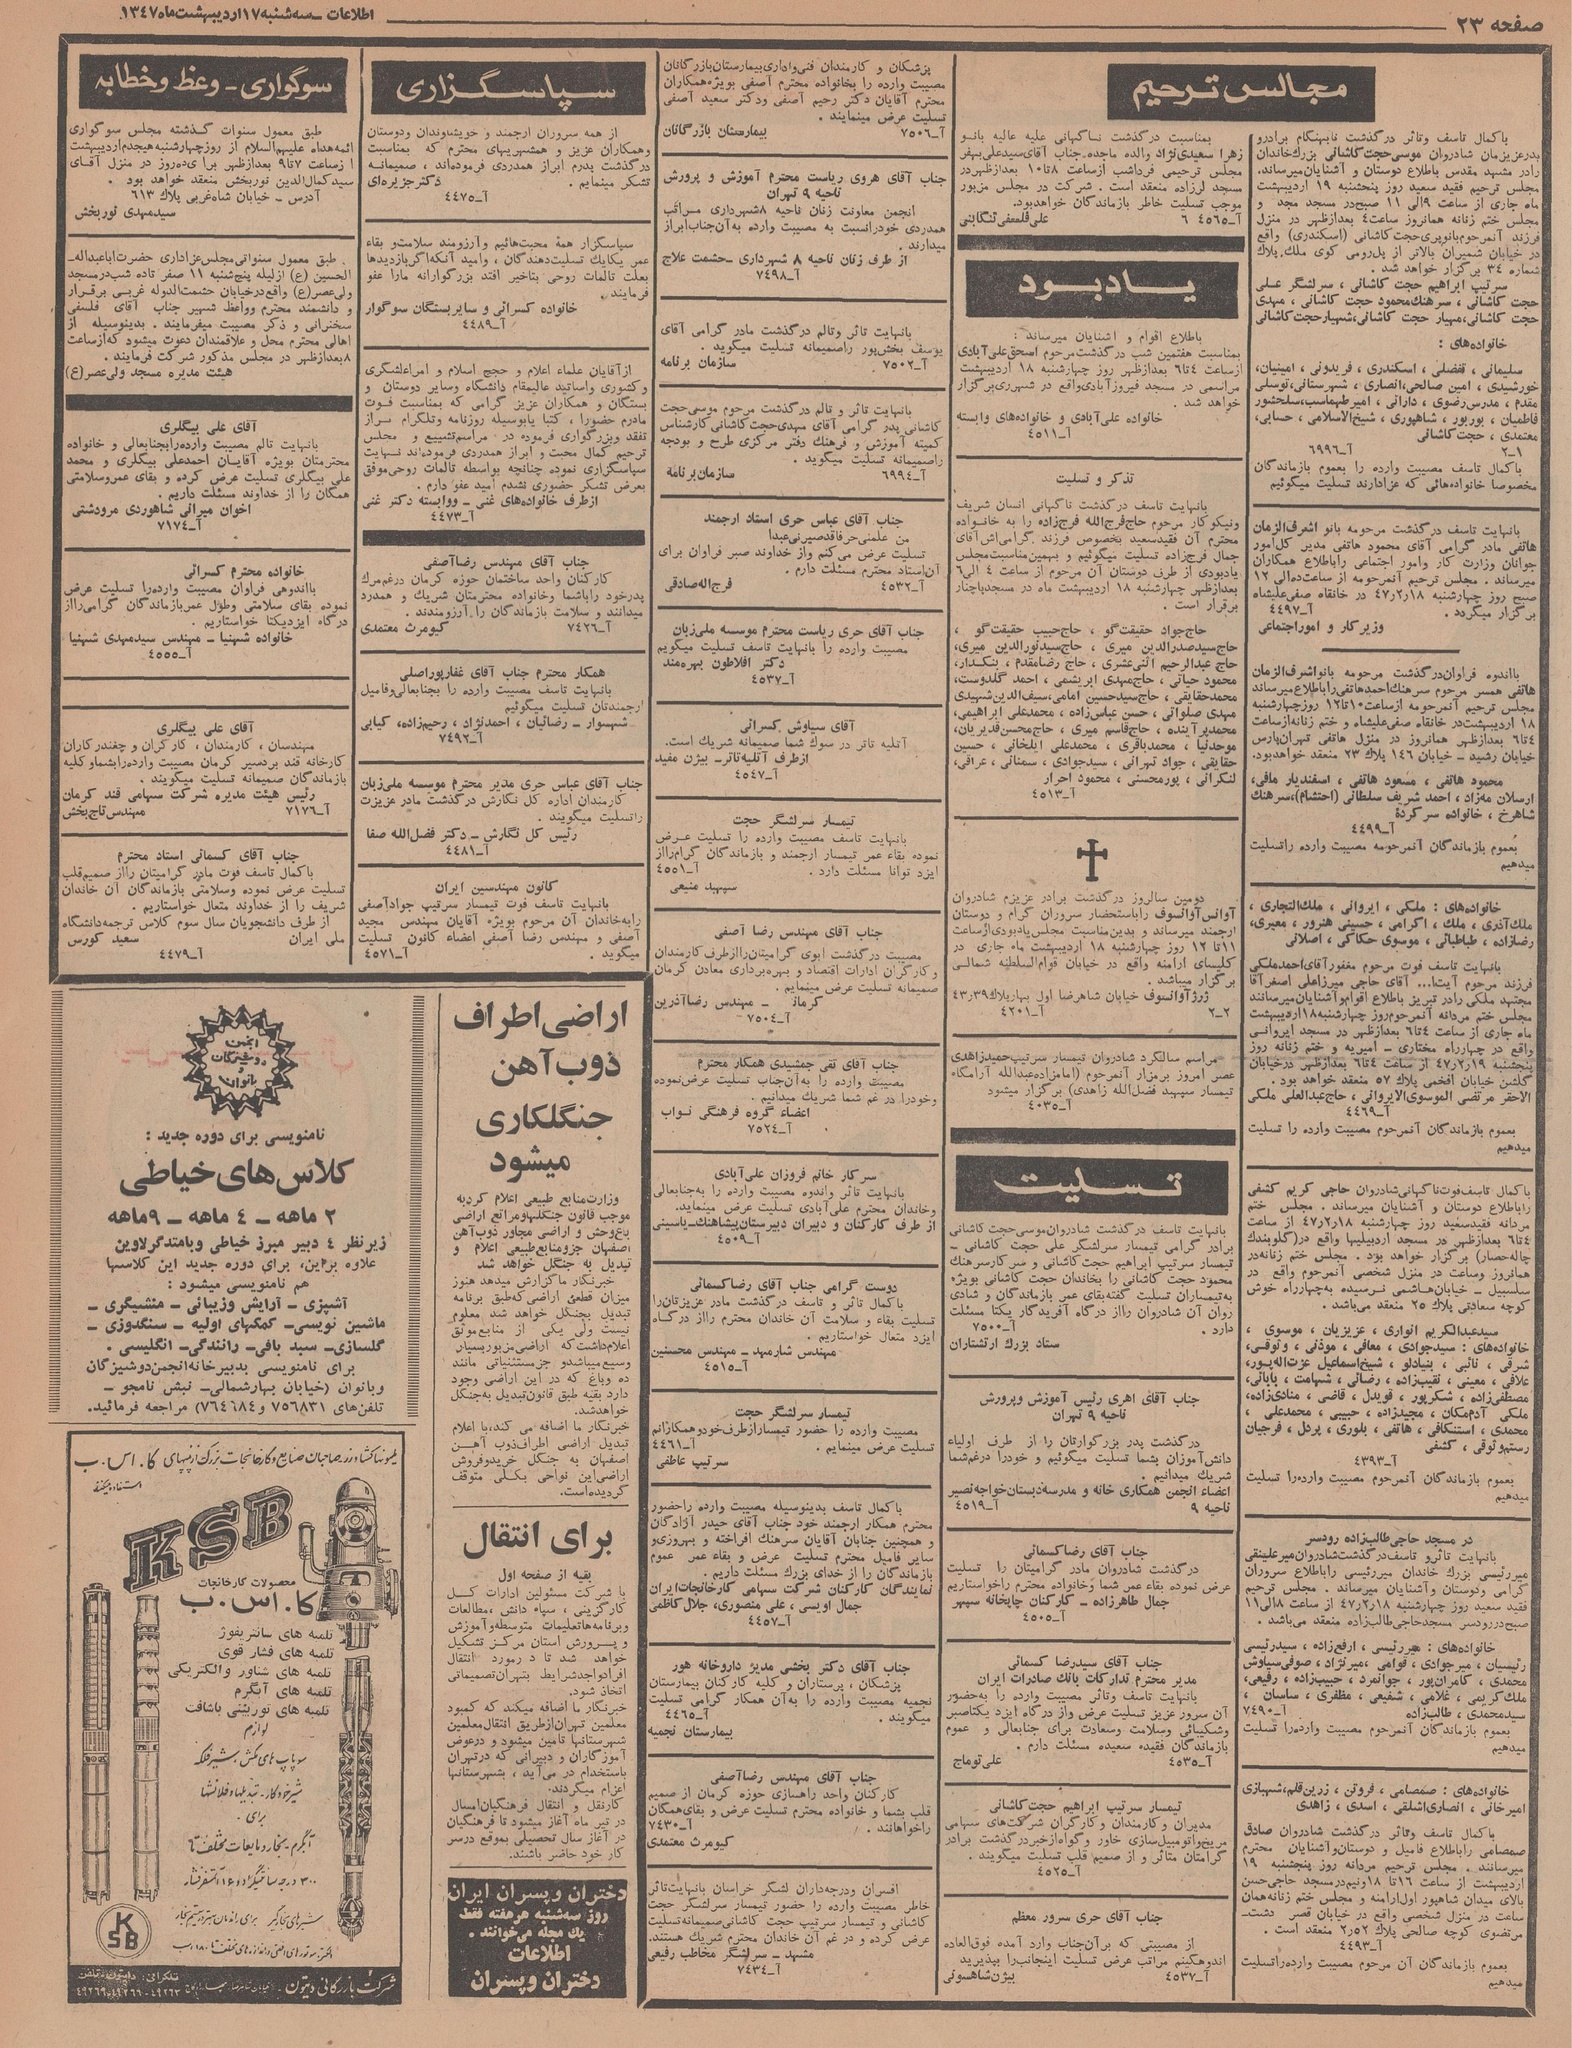 صفحه ۲۳
اطلاعات ـ سه‌شنبه ۱۷ اردیبهشت ماه ۱۳۴۷
مجالس ترحیم
باکمال تاسف وتاثر درگذشت نابهنگام برادرو
پدرعزیزمان شادروان موسی حجت کاشانی بزرگ خاندان
رادر مشهد مقدس باطلاع دوستان و آشنایان میرساند.
مجلس ترحیم فقید سعید روز پنجشنبه ۱۹ اردیبهشت
ماه جاری از ساعت ۹ الی ۱۱ صبح در مسجد مجد و
مجلس ختم زنانه همانروز ساعت ۴ بعدازظهر در منزل
فرزند آنمرحوم بانوپری حجت کاشانی (اسکندری) واقع
در خیابان شمیران بالاتر از پل رومی کوی ملک پلاک
شماره ۳۴ برگزار خواهد شد .
سرتیپ ابراهیم حجت کاشانی ، سرلشگر علی
حجت کاشانی ، سرهنگ محمود حجت کاشانی ، مهدی
حجت کاشانی، مهیار حجت کاشانی، شهیار حجت کاشانی
خانواده‌های :
سلیمانی ، تفضلی ، اسکندری ، فریدونی ، امینیان،
خورشیدی ، امین صالحی، انصاری ، شهرستانی، توسلی
مقدم ، مدرس رضوی ، دارائی ، امیرطهماسب، سلحشور
فاطمیان ، پورپور ، شاهپوری ، شیخ‌الاسلامی ، حسابی،
معتمدی ، حجت کاشانی
۱ـ۲ آـ۶۹۹۶
باکمال تاسف مصیبت وارده را بعموم بازماندگان
مخصوصا خانواده‌هائی که عزادارند تسلیت میگوئیم
بانهایت تاسف درگذشت مرحومه بانو اشرف‌الزمان
هاتفی مادر گرامی آقای محمود هاتفی مدیر کل امور
جوانان وزارت کار وامور اجتماعی راباطلاع همکاران
میرساند . مجلس ترحیم آنمرحومه از ساعت ده الی ۱۲
صبح روز چهارشنبه ۴۷ر۲ر۱۸ در خانقاه صفی علیشاه
برگزار میگردد . آـ۴۴۹۷
وزیر کار و امور اجتماعی
بااندوه فراوان درگذشت مرحومه بانو اشرف‌الزمان
هاتفی همسر مرحوم سرهنگ احمد هاتفی راباطلاع میرساند
مجلس ترحیم آنمرحومه از ساعت ۱۰ تا ۱۲ روز چهارشنبه
۱۸ اردیبهشت در خانقاه صفی علیشاه و ختم زنانه از ساعت
۴ تا ۶ بعدازظهر همانروز در منزل هاتفی تهران پارس
خیابان رشید ـ خیابان ۱۴۶ پلاک ۲۳ منعقد خواهد بود.
محمود هاتفی ، مسعود هاتفی ، اسفندیار مافی،
ارسلان مه‌زاد ، احمد شریف سلطانی (احتشام)، سرهنگ
شاهرخ ، خانواده سرکردة
آـ۴۴۹۹
بعموم بازماندگان آنمرحومه مصیبت وارده راتسلیت
میدهیم
خانواده‌های : ملکی ، ایروانی ، ملک‌التجاری ،
ملک آذری ، ملک ، اکرامی ، حسینی هنرور ، معیری،
رضازاده ، طباطبائی ، موسوی حکاکی ، اصلانی
بانهایت تاسف فوت مرحوم مغفور آقای احمد ملکی
فرزند مرحوم آیت‌ا... آقای حاجی میرزاعلی اصغر آقا
مجتهد ملکی رادر تبریز باطلاع اقوام و آشنایان میرسانند
مجلس ختم مردانه آنمرحوم روز چهارشنبه ۱۸ اردیبهشت
ماه جاری از ساعت ۴ تا ۶ بعدازظهر در مسجد ایروانی
واقع در چهارراه مختاری ـ امیریه و ختم زنانه روز
پنجشنبه ۴۷ر۲ر۱۹ از ساعت ۴ تا ۶ بعدازظهر در خیابان
گلشن خیابان افخمی پلاک ۵۷ منعقد خواهد بود .
الاحقر مرتضی الموسوی الایروانی ، حاج عبدالعلی ملکی
آـ۴۴۶۹
بعموم بازماندگان آنمرحوم مصیبت وارده را تسلیت
میدهیم
باکمال تاسف فوت ناگهانی شادروان حاجی کریم کشفی
راباطلاع دوستان و آشنایان میرساند. مجلس ختم
مردانه فقید سعید روز چهارشنبه ۴۷ر۲ر۱۸ از ساعت
۴ تا ۶ بعدازظهر در مسجد اردبیلیها واقع در (گلوبندک
چاله‌حصار) برگزار خواهد بود . مجلس ختم زنانه در
همانروز وساعت در منزل شخصی آنمرحوم واقع در
سلسبیل ـ خیابان هاشمی نرسیده به چهارراه خوش
کوچه سعادتی پلاک ۲۵ منعقد می‌باشد .
سید عبدالکریم انواری ، عزیزیان ، موسوی ،
خانواده‌های : سیدجوادی ، معافی ، موذنی ، وثوقی،
شرقی ، نائبی ، بنیادلو ، شیخ اسماعیل عزت‌اله‌پور،
علاقی ، معینی ، نقیب‌زاده ، رضائی ، شهامت ، بابائی،
مصطفی‌زاده ، شکرپور ، قویدل ، قاضی ، منادی‌زاده،
ملکی آدم‌مکان ، مجیدزاده ، حبیبی ، محمدعلی ،
محمدی ، استنکافی ، هاتفی ، بلوری ، پردل ، فرجیان
رستم وثوقی ، کشفی
آـ۴۳۹۳
بعموم بازماندگان آنمرحوم مصیبت وارده را تسلیت
میدهیم
در مسجد حاجی طالب‌زاده رودسر
بانهایت تاثرو تاسف درگذشت شادروان میر علینقی
میررئیسی بزرگ خاندان میررئیسی راباطلاع سروران
گرامی ودوستان وآشنایان میرساند . مجلس ترحیم
فقید سعید روز چهارشنبه ۴۷ر۲ر۱۸ از ساعت ۸ الی ۱۱
صبح در رودسر مسجد حاجی طالب‌زاده منعقد می‌باشد .
خانواده‌های : میررئیسی ، ارفع‌زاده ، سیدرئیسی
رئیسیان ، میرجوادی ، قوامی ، میرنژاد ، صوفی سیاوش
محمدی ، کامران‌پور ، جوانمرد ، حبیب‌زاده ، رفیعی،
ملک کریمی ، غلامی ، شفیعی ، مظفری ، ساسان ،
سیدمحمدی ، طالب‌زاده آـ۷۴۹۰
بعموم بازماندگان آنمرحوم مصیبت وارده را تسلیت
میدهیم
خانواده‌های : صمصامی ، فروتن ، زرین قلم، شهبازی
امیرخانی ، انصاری اشلقی ، اسدی ، زاهدی
باکمال تاسف وتاثر درگذشت شادروان صادق
صمصامی راباطلاع فامیل و دوستان وآشنایان محترم
میرسانند . مجلس ترحیم مردانه روز پنجشنبه ۱۹
اردیبهشت از ساعت ۱۶ تا ۱۸ ونیم در مسجد حاجی حسن
بالای میدان شاهپور اول ارامنه و مجلس ختم زنانه همان
ساعت در منزل شخصی واقع در خیابان قصر الدشت ـ
مرتضوی کوچه صالحی پلاک ۲ر۵۲ منعقد است .
آـ۴۴۹۳
بعموم بازماندگان آن مرحوم مصیبت وارده راتسلیت
میدهیم
بمناسبت درگذشت ناگهانی علیه عالیه بانو
زهرا سعیدی نژاد والده ماجده جناب آقای سیدعلی بهفر
مجلس ترحیمی فرداشب از ساعت ۸ تا ۱۰ بعدازظهر در
مسجد لرزاده منعقد است . شرکت در مجلس مزبور
موجب تسلیت خاطر بازماندگان خواهد بود.
آـ۴۵۶۵ ۶ علی فلسفی تنکابنی
یادبود
باطلاع اقوام و آشنایان میرساند :
بمناسبت هفتمین شب درگذشت مرحوم اسحق علی‌آبادی
از ساعت ۴ تا ۶ بعدازظهر روز چهارشنبه ۱۸ اردیبهشت
مراسمی در مسجد فیروزآبادی واقع در شهرری برگزار
خواهد شد .
خانواده علی‌آبادی و خانواده‌های وابسته
آـ۴۵۱۱
تذکر و تسلیت
بانهایت تاسف درگذشت ناگهانی انسان شریف
ونیکوکار مرحوم حاج فرج‌الله فرج‌زاده را به خانواده
محترم آن فقید سعید بخصوص فرزند گرامی‌اش آقای
جمال فرج‌زاده تسلیت میگوئیم و بهمین مناسبت مجلس
یادبودی از طرف دوستان آن مرحوم از ساعت ۴ الی ۶
بعدازظهر چهارشنبه ۱۸ اردیبهشت ماه در مسجد پاچنار
برقرار است .
حاج جواد حقیقت‌گو ، حاج حبیب حقیقت‌گو ،
حاج سید صدرالدین میری ، حاج سیدنورالدین میری،
حاج عبدالرحیم اثنی‌عشری ، حاج رضا مقدم ، بنکدار،
محمود حیاتی ، حاج مهدی ابریشمی ، احمد گلدوست،
محمدحقایقی ، حاج سید حسین امامی، سیف‌الدین شهیدی
مهدی صلواتی ، حسن عباس‌زاده ، محمدعلی ابراهیمی،
محمد پرآینده ، حاج قاسم میری ، حاج محسن قدیریان،
موحدنیا ، محمدباقری ، محمدعلی ایلخانی ، حسین
حقایقی ، جواد تهرانی ، سیدجوادی ، سمنانی ، عراقی،
لنکرانی ، پورمحسنی ، محمود احرار
آـ۴۵۱۳
دومین سالروز درگذشت برادر عزیزم شادروان
آوانس آوانسوف راباستحضار سروران گرام و دوستان
ارجمند میرساند و بدین مناسبت مجلس یادبودی از ساعت
۱۱ تا ۱۲ روز چهارشنبه ۱۸ اردیبهشت ماه جاری در
کلیسای ارامنه واقع در خیابان قوام‌السلطنه شمالی
برگزار میباشد .
ژرژ آوانسوف خیابان شاهرضا اول بهار پلاک ۳۹ر۴۳
۲ـ۲ آـ۴۲۰۱
مراسم سالگرد شادروان تیمسار سرتیپ حمید زاهدی
عصر امروز برمزار آنمرحوم (امامزاده عبدالله آرامگاه
تیمسار سپهبد فضل‌الله زاهدی) برگزار میشود
آـ۴۰۳۵
تسلیت
بانهایت تاسف درگذشت شادروان موسی حجت کاشانی
برادر گرامی تیمسار سرلشگر علی حجت کاشانی ـ
تیمسار سرتیپ ابراهیم حجت کاشانی و سرکار سرهنگ
محمود حجت کاشانی را بخاندان حجت کاشانی بویژه
به تیمساران تسلیت گفته بقای عمر بازماندگان و شادی
روان آن شادروان رااز درگاه آفریدگار یکتا مسئلت
دارد . آـ۷۵۰۰
ستاد بزرگ ارتشتاران
جناب آقای اهری رئیس آموزش وپرورش
ناحیه ۹ تهران
درگذشت پدر بزرگوارتان را از طرف اولیاء
دانش‌آموزان بشما تسلیت میگوئیم و خودرا درغم شما
شریک میدانیم .
اعضاء انجمن همکاری خانه و مدرسه دبستان خواجه نصیر
ناحیه ۹ آـ۴۵۱۹
جناب آقای رضا کسمائی
درگذشت شادروان مادر گرامیتان را تسلیت
عرض نموده بقاء عمر شما وخانواده محترم راخواستاریم
جمال طاهرزاده ـ کارکنان چاپخانه سپهر
آـ۴۵۰۵
جناب آقای سیدرضا کسمائی
مدیر محترم تدارکات بانک صادرات ایران
بانهایت تاسف وتاثر مصیبت وارده را به حضور
آن سرور عزیز تسلیت عرض واز درگاه ایزد یکتا صبر
وشکیبائی وسلامت وسعادت برای جنابعالی و عموم
بازماندگان فقیده سعیده مسئلت دارم .
آـ۴۵۳۵ علی توماج
تیمسار سرتیپ ابراهیم حجت کاشانی
مدیران و کارمندان و کارگران شرکت‌های سهامی
مریخ واتومبیل‌سازی خاور وگواه از خبر درگذشت برادر
گرامتان متاثر و از صمیم قلب تسلیت میگویند .
آـ۴۵۲۵
جناب آقای حری سرور معظم
از مصیبتی که بر آن جناب وارد آمده فوق‌العاده
اندوهگینم مراتب عرض تسلیت اینجانب را بپذیرید
آـ۴۵۳۷ بیژن شاهسونی
پزشکان و کارمندان فنی واداری بیمارستان بازرگانان
مصیبت وارده را بخانواده محترم آصفی بویژه همکاران
محترم آقایان دکتر رحیم آصفی ودکتر سعید آصفی
تسلیت عرض مینمایند .
آـ۷۵۰۶ بیمارستان بازرگانان
جناب آقای هروی ریاست محترم آموزش و پرورش
ناحیه ۹ تهران
انجمن معاونت زنان ناحیه ۸ شهرداری مراتب
همدردی خودرا نسبت به مصیبت وارده به آن جناب ابراز
میدارند .
از طرف زنان ناحیه ۸ شهرداری ـ حشمت علاج
آـ۷۴۹۸
بانهایت تاثر وتالم درگذشت مادر گرامی آقای
یوسف بخش‌پور راصمیمانه تسلیت میگوید .
آـ۷۵۰۲ سازمان برنامه
بانهایت تاثر و تالم درگذشت مرحوم موسی حجت
کاشانی پدر گرامی آقای مهدی حجت کاشانی کارشناس
کمیته آموزش و فرهنگ دفتر مرکزی طرح و بودجه
راصمیمانه تسلیت میگوید .
آـ۶۹۹۴ سازمان برنامه
جناب آقای عباس حری استاد ارجمند
من علمنی حرفا قد صیرنی عبدا
تسلیت عرض می‌کنم واز خداوند صبر فراوان برای
آن استاد محترم مسئلت دارم .
آـ۴۵۳۲ فرج‌اله صادقی
جناب آقای حری ریاست محترم موسسه ملی زبان
مصیبت وارده را بانهایت تاسف تسلیت میگویم
دکتر افلاطون بهره‌مند
آـ۴۵۳۷
آقای سیاوش کسرائی
آتلیه تاتر در سوک شما صمیمانه شریک است.
از طرف آتلیه تاتر ـ بیژن مفید
آـ۴۵۴۷
تیمسار سرلشگر حجت
بانهایت تاسف مصیبت وارده را تسلیت عرض
نموده بقاء عمر تیمسار ارجمند و بازماندگان گرام رااز
ایزد توانا مسئلت دارد . آـ۴۵۵۱
سپهبد منیعی
جناب آقای مهندس رضا آصفی
مصیبت درگذشت ابوی گرامیتان رااز طرف کارمندان
و کارگران ادارات اقتصاد و بهره‌برداری معادن کرمان
صمیمانه تسلیت عرض مینمایم .
کرمان ـ مهندس رضا آذرین
آـ۷۵۰۴
جناب آقای تقی جمشیدی همکار محترم
مصیبت وارده را به آن جناب تسلیت عرض نموده
وخودرا در غم شما شریک میدانیم .
اعضاء گروه فرهنگی نواب
آـ۷۵۲۴
سرکار خانم فروزان علی‌آبادی
بانهایت تاثر واندوه مصیبت وارده را به جنابعالی
وخاندان محترم علی‌آبادی تسلیت عرض مینماید.
از طرف کارکنان و دبیران دبیرستان پیشاهنگ ـ یاسینی
آـ۴۵۰۹
دوست گرامی جناب آقای رضا کسمائی
باکمال تاثر و تاسف درگذشت مادر عزیزتان را
تسلیت بقاء و سلامت آن خاندان محترم رااز درگاه
ایزد متعال خواستاریم .
مهندس شارمهد ـ مهندس محسنین
آـ۴۵۱۵
تیمسار سرلشگر حجت
مصیبت وارده را حضور تیمسار از طرف خود و همکارانم
تسلیت عرض مینمایم . آـ۴۴۶۱
سرتیپ عاطفی
باکمال تاسف بدینوسیله مصیبت وارده را حضور
محترم همکار ارجمند خود جناب آقای حیدر آزادگان
و همچنین جنابان آقایان سرهنگ افراخته و بهروزی و
سایر فامیل محترم تسلیت عرض و بقاء عمر عموم
بازماندگان را از خدای بزرگ مسئلت داریم .
نمایندگان کارکنان شرکت سهامی کارخانجات ایران
جمال اویسی ، علی منصوری، جلال کاظمی
آـ۴۴۵۷
جناب آقای دکتر بخشی مدیر داروخانه هور
پزشکان ، پرستاران و کلیه کارکنان بیمارستان
نجمیه مصیبت وارده را به آن همکار گرامی تسلیت
میگویند . آـ۴۴۶۵
بیمارستان نجمیه
جناب آقای مهندس رضا آصفی
کارکنان واحد راهسازی حوزه کرمان از صمیم
قلب بشما و خانواده محترم تسلیت عرض و بقای همگان
راخواهانند . آـ۷۴۳۰
کیومرث معتمدی
افسران ودرجه‌داران لشگر خراسان بانهایت تاثر
خاطر مصیبت وارده را حضور تیمسار سرلشگر حجت
کاشانی و تیمسار سرتیپ حجت کاشانی صمیمانه تسلیت
عرض کرده و در غم آن خاندان محترم شریک هستند.
مشهد ـ سرلشگر مخاطب رفیعی
آـ۷۴۳۴
سپاسگزاری
از همه سروران ارجمند و خویشاوندان ودوستان
وهمکاران عزیز و همشهریهای محترم که بمناسبت
درگذشت پدرم ابراز همدردی فرموده‌اند ، صمیمانه
تشکر مینمایم . دکتر جزیره‌ای
آـ۴۴۷۵
سپاسگزار همهٔ محبت‌هائیم و آرزومند سلامت و بقاء
عمر یکایک تسلیت دهندگان ، وامید آنکه اگر بازدیدها
بعلت تالمات روحی بتاخیر افتد بزرگوارانه مارا عفو
فرمایند .
خانواده کسرائی و سایر بستگان سوگوار
آـ۴۴۸۹
از آقایان علماء اعلام و حجج اسلام و امراء لشگری
و کشوری واساتید عالیمقام دانشگاه وسایر دوستان و
بستگان و همکاران عزیز گرامی که بمناسبت فوت
مادرم حضورا ، کتبا یابوسیله روزنامه وتلگرام سراز
تفقد وبزرگواری فرموده در مراسم تشییع و مجلس
ترحیم کمال محبت و ابراز همدردی فرموده‌اند نسهایت
سپاسگزاری نموده چنانچه بواسطه تالمات روحی موفق
بعرض تشکر حضوری نشدم امید عفو دارم .
از طرف خانواده‌های غنی ـ و وابسته دکتر غنی
آـ۴۴۷۳
جناب آقای مهندس رضا آصفی
کارکنان واحد ساختمان حوزه کرمان درغم مرگ
پدر خود راباشما وخانواده محترمتان شریک و همدرد
میدانند و سلامت بازماندگان را آرزومندند .
آـ۷۴۲۶ کیومرث معتمدی
همکار محترم جناب آقای غفارپور اصلی
بانهایت تاسف مصیبت وارده را بجنابعالی وفامیل
ارجمندتان تسلیت میگوئیم
شهسوار ـ رضائیان ، احمدنژاد ، رحیم‌زاده، کیابی
آـ۷۴۹۲
جناب آقای عباس حری مدیر محترم موسسه ملی زبان
کارمندان اداره کل نگارش درگذشت مادر عزیزت
راتسلیت میگویند .
رئیس کل نگارش ـ دکتر فضل‌الله صفا
آـ۴۴۸۱
کانون مهندسین ایران
بانهایت تاسف فوت تیمسار سرتیپ جواد آصفی
رابه خاندان آن مرحوم بویژه آقایان مهندس مجید
آصفی و مهندس رضا آصفی اعضاء کانون تسلیت
میگوید . آـ۴۵۷۱
سوگواری ـ وعظ و خطابه
طبق معمول سنوات گذشته مجلس سوگواری
ائمه هداه علیهم‌السلام از روز چهارشنبه هیجدهم اردیبهشت
از ساعت ۷ تا ۹ بعدازظهر برای ده روز در منزل آقای
سید کمال‌الدین نوربخش منعقد خواهد بود .
آدرس ـ خیابان شاه غربی پلاک ۶۱۳
سید مهدی نوربخش
طبق معمول سنواتی مجلس عزاداری حضرت اباعبداله ـ
الحسین (ع) ازلیله پنج‌شنبه ۱۱ صفر تاده شب در مسجد
ولی عصر (ع) واقع در خیابان حشمت‌الدوله غربی برقرار
و دانشمند محترم وواعظ شهیر جناب آقای فلسفی
سخنرانی و ذکر مصیبت میفرمایند . بدینوسیله از
اهالی محترم محل و علاقمندان دعوت میشود که از ساعت
۸ بعدازظهر در مجلس مذکور شرکت فرمایند .
هیئت مدیره مسجد ولی عصر (ع)
آقای علی بیگلری
بانهایت تالم مصیبت وارده رابجنابعالی و خانواده
محترمتان بویژه آقایان احمدعلی بیگلری و محمد
علی بیگلری تسلیت عرض کرده و بقای عمر وسلامتی
همگان را از خداوند مسئلت داریم .
اخوان میرائی شاهوردی مرودشتی
آـ۷۱۷۴
خانواده محترم کسرائی
بااندوهی فراوان مصیبت وارده‌را تسلیت عرض
نموده بقای سلامتی وطول عمر بازماندگان گرامی رااز
درگاه ایزد یکتا خواستاریم .
خانواده شهنیا ـ مهندس سیدمهدی شهنیا
آـ۴۵۵۵
آقای علی بیگلری
مهندسان ، کارمندان ، کارگران و چغندرکاران
کارخانه قند بردسیر کرمان مصیبت وارده رابشما و کلیه
بازماندگان صمیمانه تسلیت میگویند .
رئیس هیئت مدیره شرکت سهامی قند کرمان
آـ۷۱۷۶ مهندس تاج بخش
جناب آقای کسمائی استاد محترم
باکمال تاسف فوت مادر گرامیتان رااز صمیم قلب
تسلیت عرض نموده وسلامتی بازماندگان آن خاندان
شریف را از خداوند متعال خواستاریم .
از طرف دانشجویان سال سوم کلاس ترجمه دانشگاه
ملی ایران سعید کورس
آـ۴۴۷۹
اراضی اطراف
ذوب آهن
جنگلکاری
میشود
وزارت منابع طبیعی اعلام کرد به
موجب قانون جنگلها و مراتع اراضی
باغ وحش و اراضی مجاور ذوب آهن
اصفهان جزو منابع طبیعی اعلام و
تبدیل به جنگل خواهد شد
خبرنگار ما گزارش میدهد هنوز
میزان قطعی اراضی که طبق برنامه
تبدیل بجنگل خواهد شد معلوم
نیست ولی یکی از منابع موثق
اعلام داشت که اراضی مزبور بسیار
وسیع میباشد و جز مستثنیاتی مانند
ده وباغ که در این اراضی وجود
دارد بقیه طبق قانون تبدیل به جنگل
خواهد شد.
خبرنگار ما اضافه می کند، با اعلام
تبدیل اراضی اطراف ذوب آهن
اصفهان به جنگل خرید و فروش
اراضی این نواحی بکلی متوقف
گردیده است.
برای انتقال
بقیه از صفحه اول
با شرکت مسئولین ادارات کل
کارگزینی ، سپاه دانش ، مطالعات
وبرنامه‌ها تعلیمات متوسطه و آموزش
و پرورش استان مرکز تشکیل
خواهد شد تا در مورد انتقال
افراد واجد شرایط بتهران تصمیماتی
اتخاذ شود.
خبرنگار ما اضافه میکند که کمبود
معلمین تهران از طریق انتقال معلمین
شهرستانها تامین میشود و در عوض
آموزگاران و دبیرانی که در تهران
باستخدام در می‌آید ، بشهرستانها
اعزام میگردند.
کار نقل و انتقال فرهنگیان امسال
در تیر ماه آغاز میشود تا فرهنگیان
در آغاز سال تحصیلی بموقع درسر
کار خود حاضر باشند.
دختران و پسران ایران
روز سه‌شنبه هر هفته فقط
یک مجله می‌خوانند .
اطلاعات
دختران و پسران
انجمن
دوشیزگان
و
بانوان
نامنویسی برای دوره جدید :
کلاس های خیاطی
۲ ماهه ـ ۴ ماهه ـ ۹ ماهه
زیر نظر ۴ دبیر مبرز خیاطی و بامتد گرلاوین
علاوه براین، برای دوره جدید این کلاسها
هم نامنویسی میشود :
آشپزی ـ آرایش و زیبائی ـ منشیگری ـ
ماشین نویسی ـ کمکهای اولیه ـ سنگدوزی ـ
گلسازی ـ سبد بافی ـ رانندگی ـ انگلیسی .
برای نامنویسی بدبیر خانه انجمن دوشیزگان
و بانوان (خیابان بهار شمالی ـ نبش نامجو ـ
تلفن‌های ۷۵۶۸۳۱ و ۷۶۴۶۸۴) مراجعه فرمائید.
میلیونها کشاورز صاحبان صنایع و کارخانجات بزرگ از پمپهای کا.اس.ب
استفاده میکنند
KSB
محصولات کارخانجات
کا.اس.ب
تلمبه های سانتریفوژ
تلمبه های فشار قوی
تلمبه های شناور و الکتریکی
تلمبه های آبگرم
تلمبه های توربینی باشافت
لوازم
سوپاپ های مکش ـ شیر فلکه
شیر خودکار ـ تبدیلها و فلانشها
برای
آبگرم ـ بخار و مایعات مختلف تا
۳۰۰ درجه سانتیگراد و ۱۶ آتمسفر فشار
KSB
شرکت بازرگانی دیتون